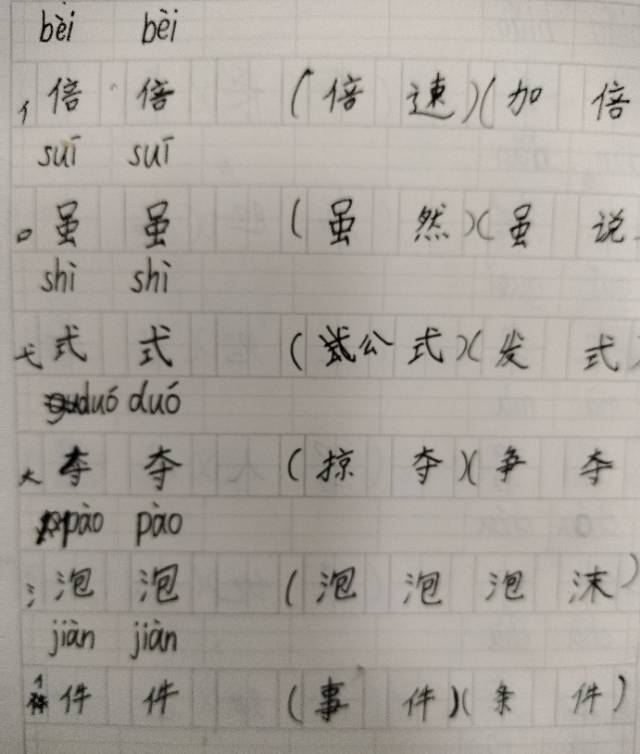 bèi bèi
亻倍 倍 (倍 速)(加 倍
suī suī
口虽 虽 (虽 然)(虽 说
shì shì
弋式 式 (公 式)(发 式)
duó duó
大夺 夺 (掠 夺)(争 夺
pào pào
氵泡 泡 (泡 泡 泡 沫)
jiàn jiàn
亻件 件 (事 件)(条 件)